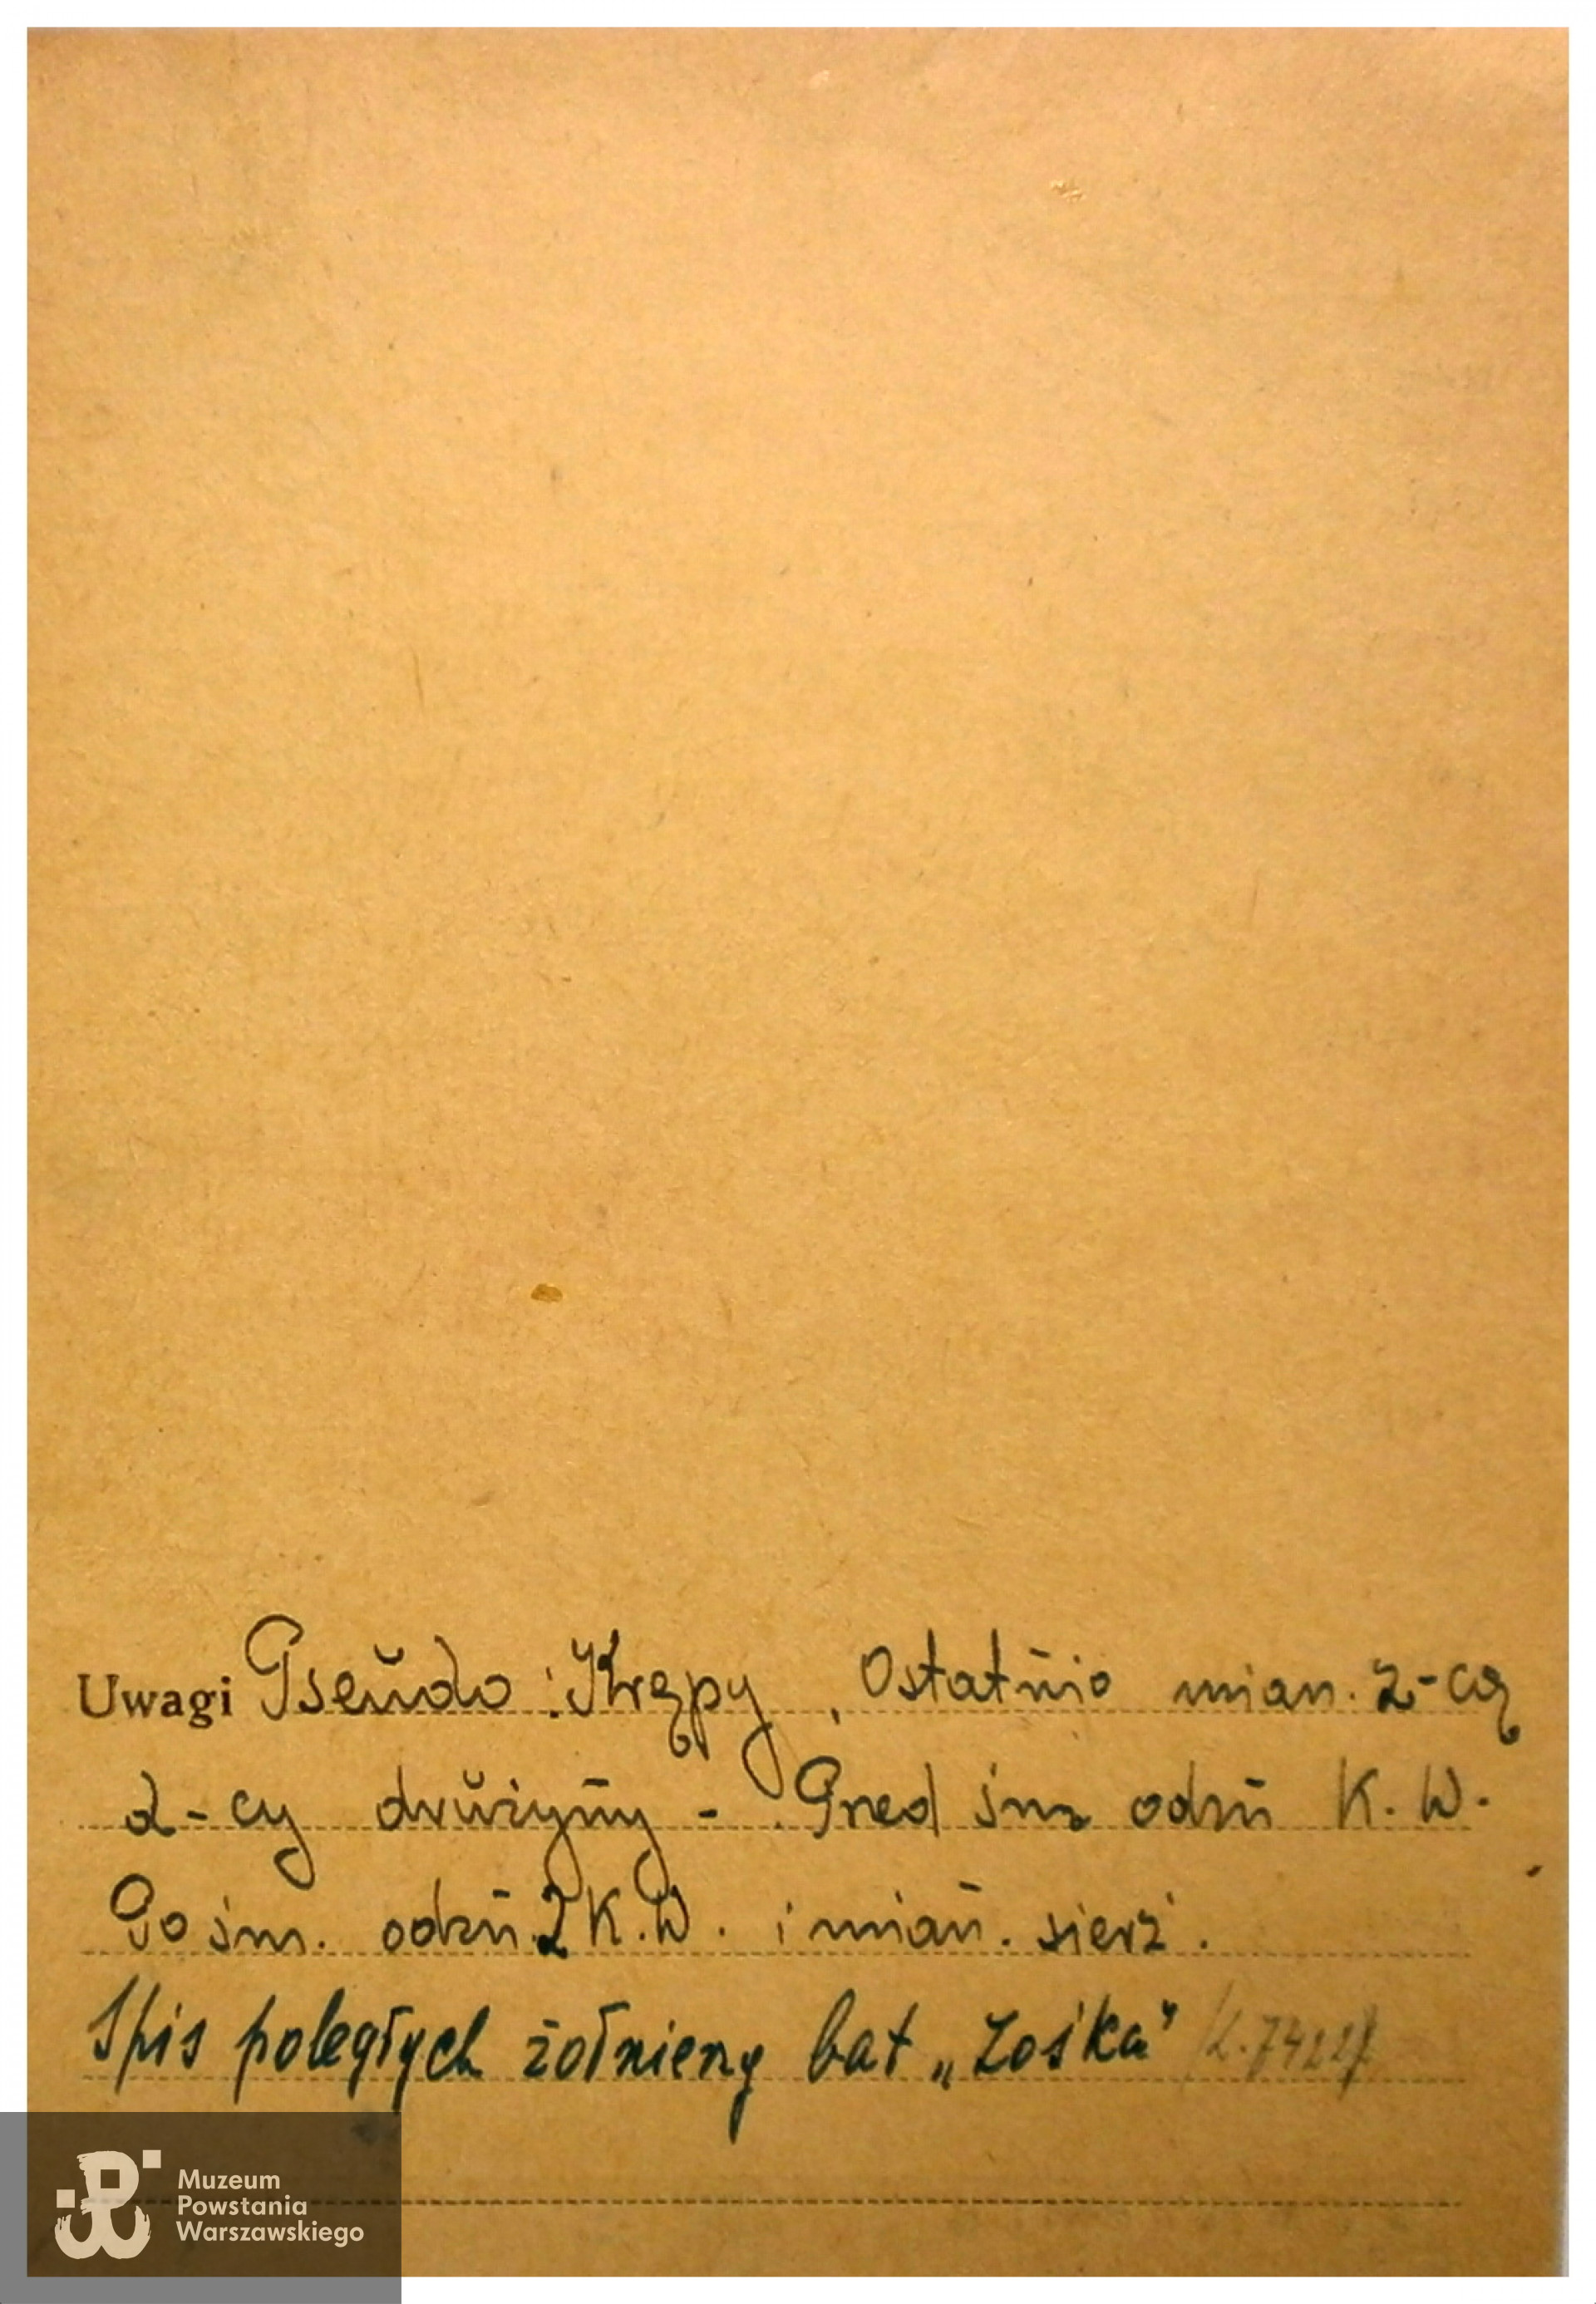 Uwagi Pseŭdo: Krępy, Ostatn̄io mian. z-cą
z-cy drŭżyn̄y - Przed śm odzn̄ K. W.
Po śm. odzn̄. 2 K.W. i mian̄. sierż.
Spis poległych żołnierzy bat „Zośka"
Muzeum
Powstania
Warszawskiego